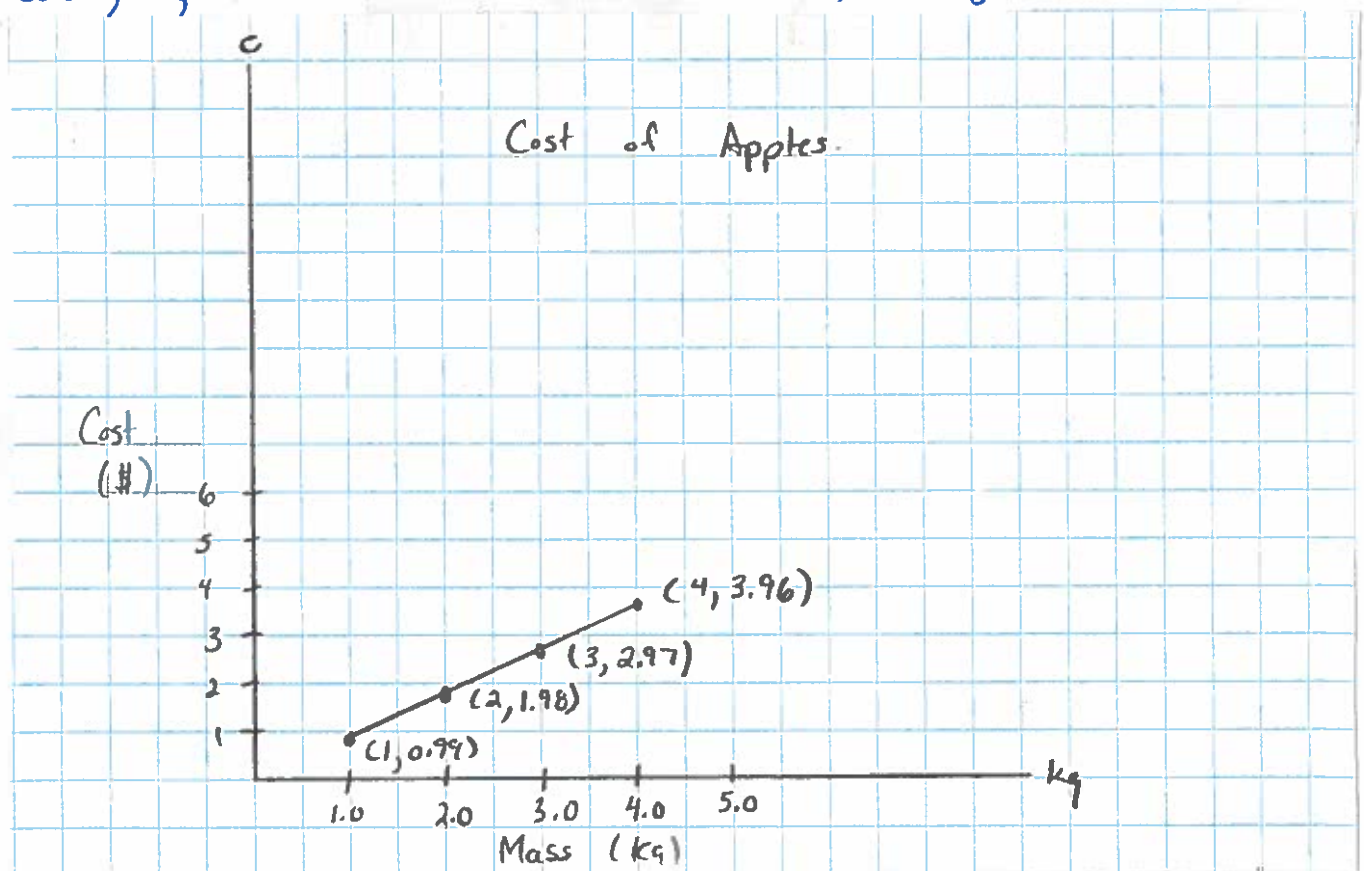 c
Cost of Apples.
Cost
(#)
6
5
4
3
2
1
(4, 3.96)
(3, 2.97)
(2, 1.98)
(1, 0.99)
1.0 2.0 3.0 4.0 5.0
kg
Mass (kg)